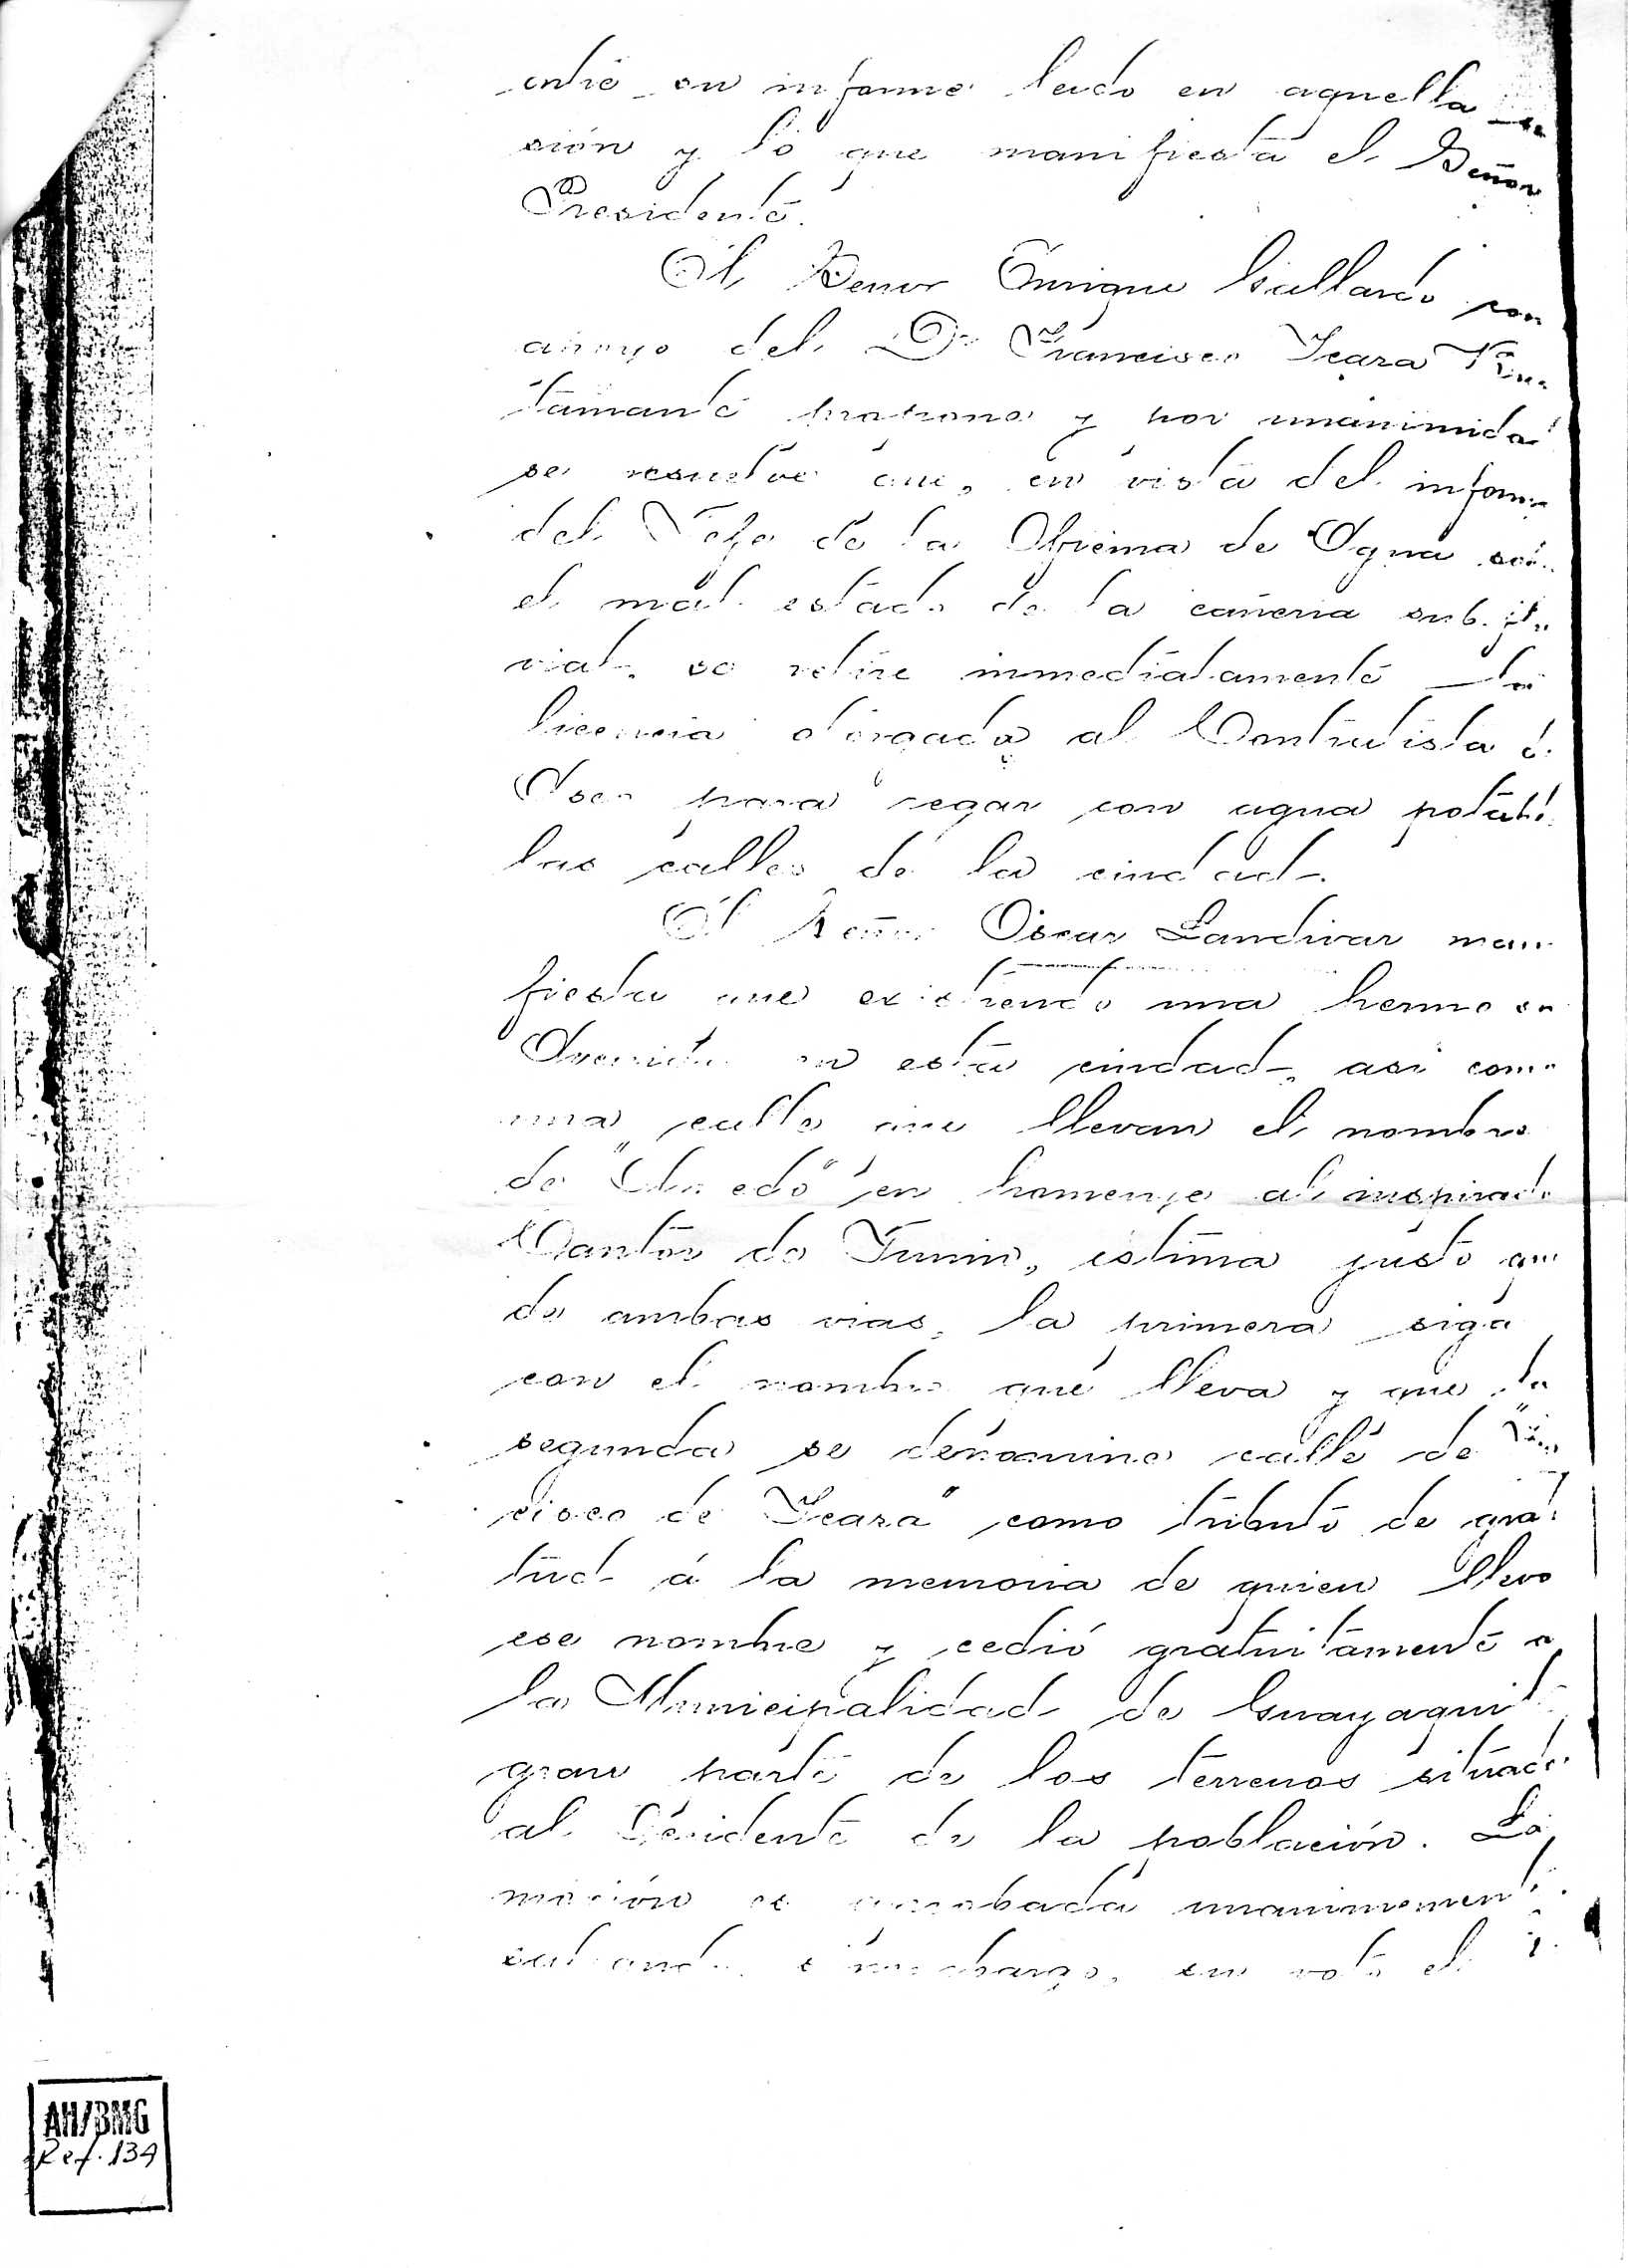 su informe leido en aquella se
sión y lo que manifiesta el Señor
Presidente.
El Señor Enrique Gallardo con
apoyo del Dr Francisco Icaza Bus
tamante propone y por unanimidad
se resuelve que, en vista del informe
del Jefe de la Oficina de Agua sob
el mal estado de la cañeria sub-flu
vial, se retire inmediatamente la
licencia otorgada al Contratista de
Aseo para regar con agua potable
las calles de la ciudad.
El Señor Oscar Landivar mani
fiesta que existiendo una hermosa
Avenida en esta ciudad, asi como
una calle que llevan el nombre
de "Olmedo" en homenaje al inspirado
Cantor de Junin, estima justo que
de ambas vias, la primera siga
con el nombre que lleva y que la
segunda se denomine calle de "Fran
cisco de Icaza" como tributo de grati
tud á la memoria de quien llevo
ese nombre y cedió gratuitamente a
la Municipalidad de Guayaquil
gran parte de los terrenos situados
al Occidente de la población. La
moción es aprobada unanimement
salvando, sin embargo, su voto el
AH/BMG
Ref. 134